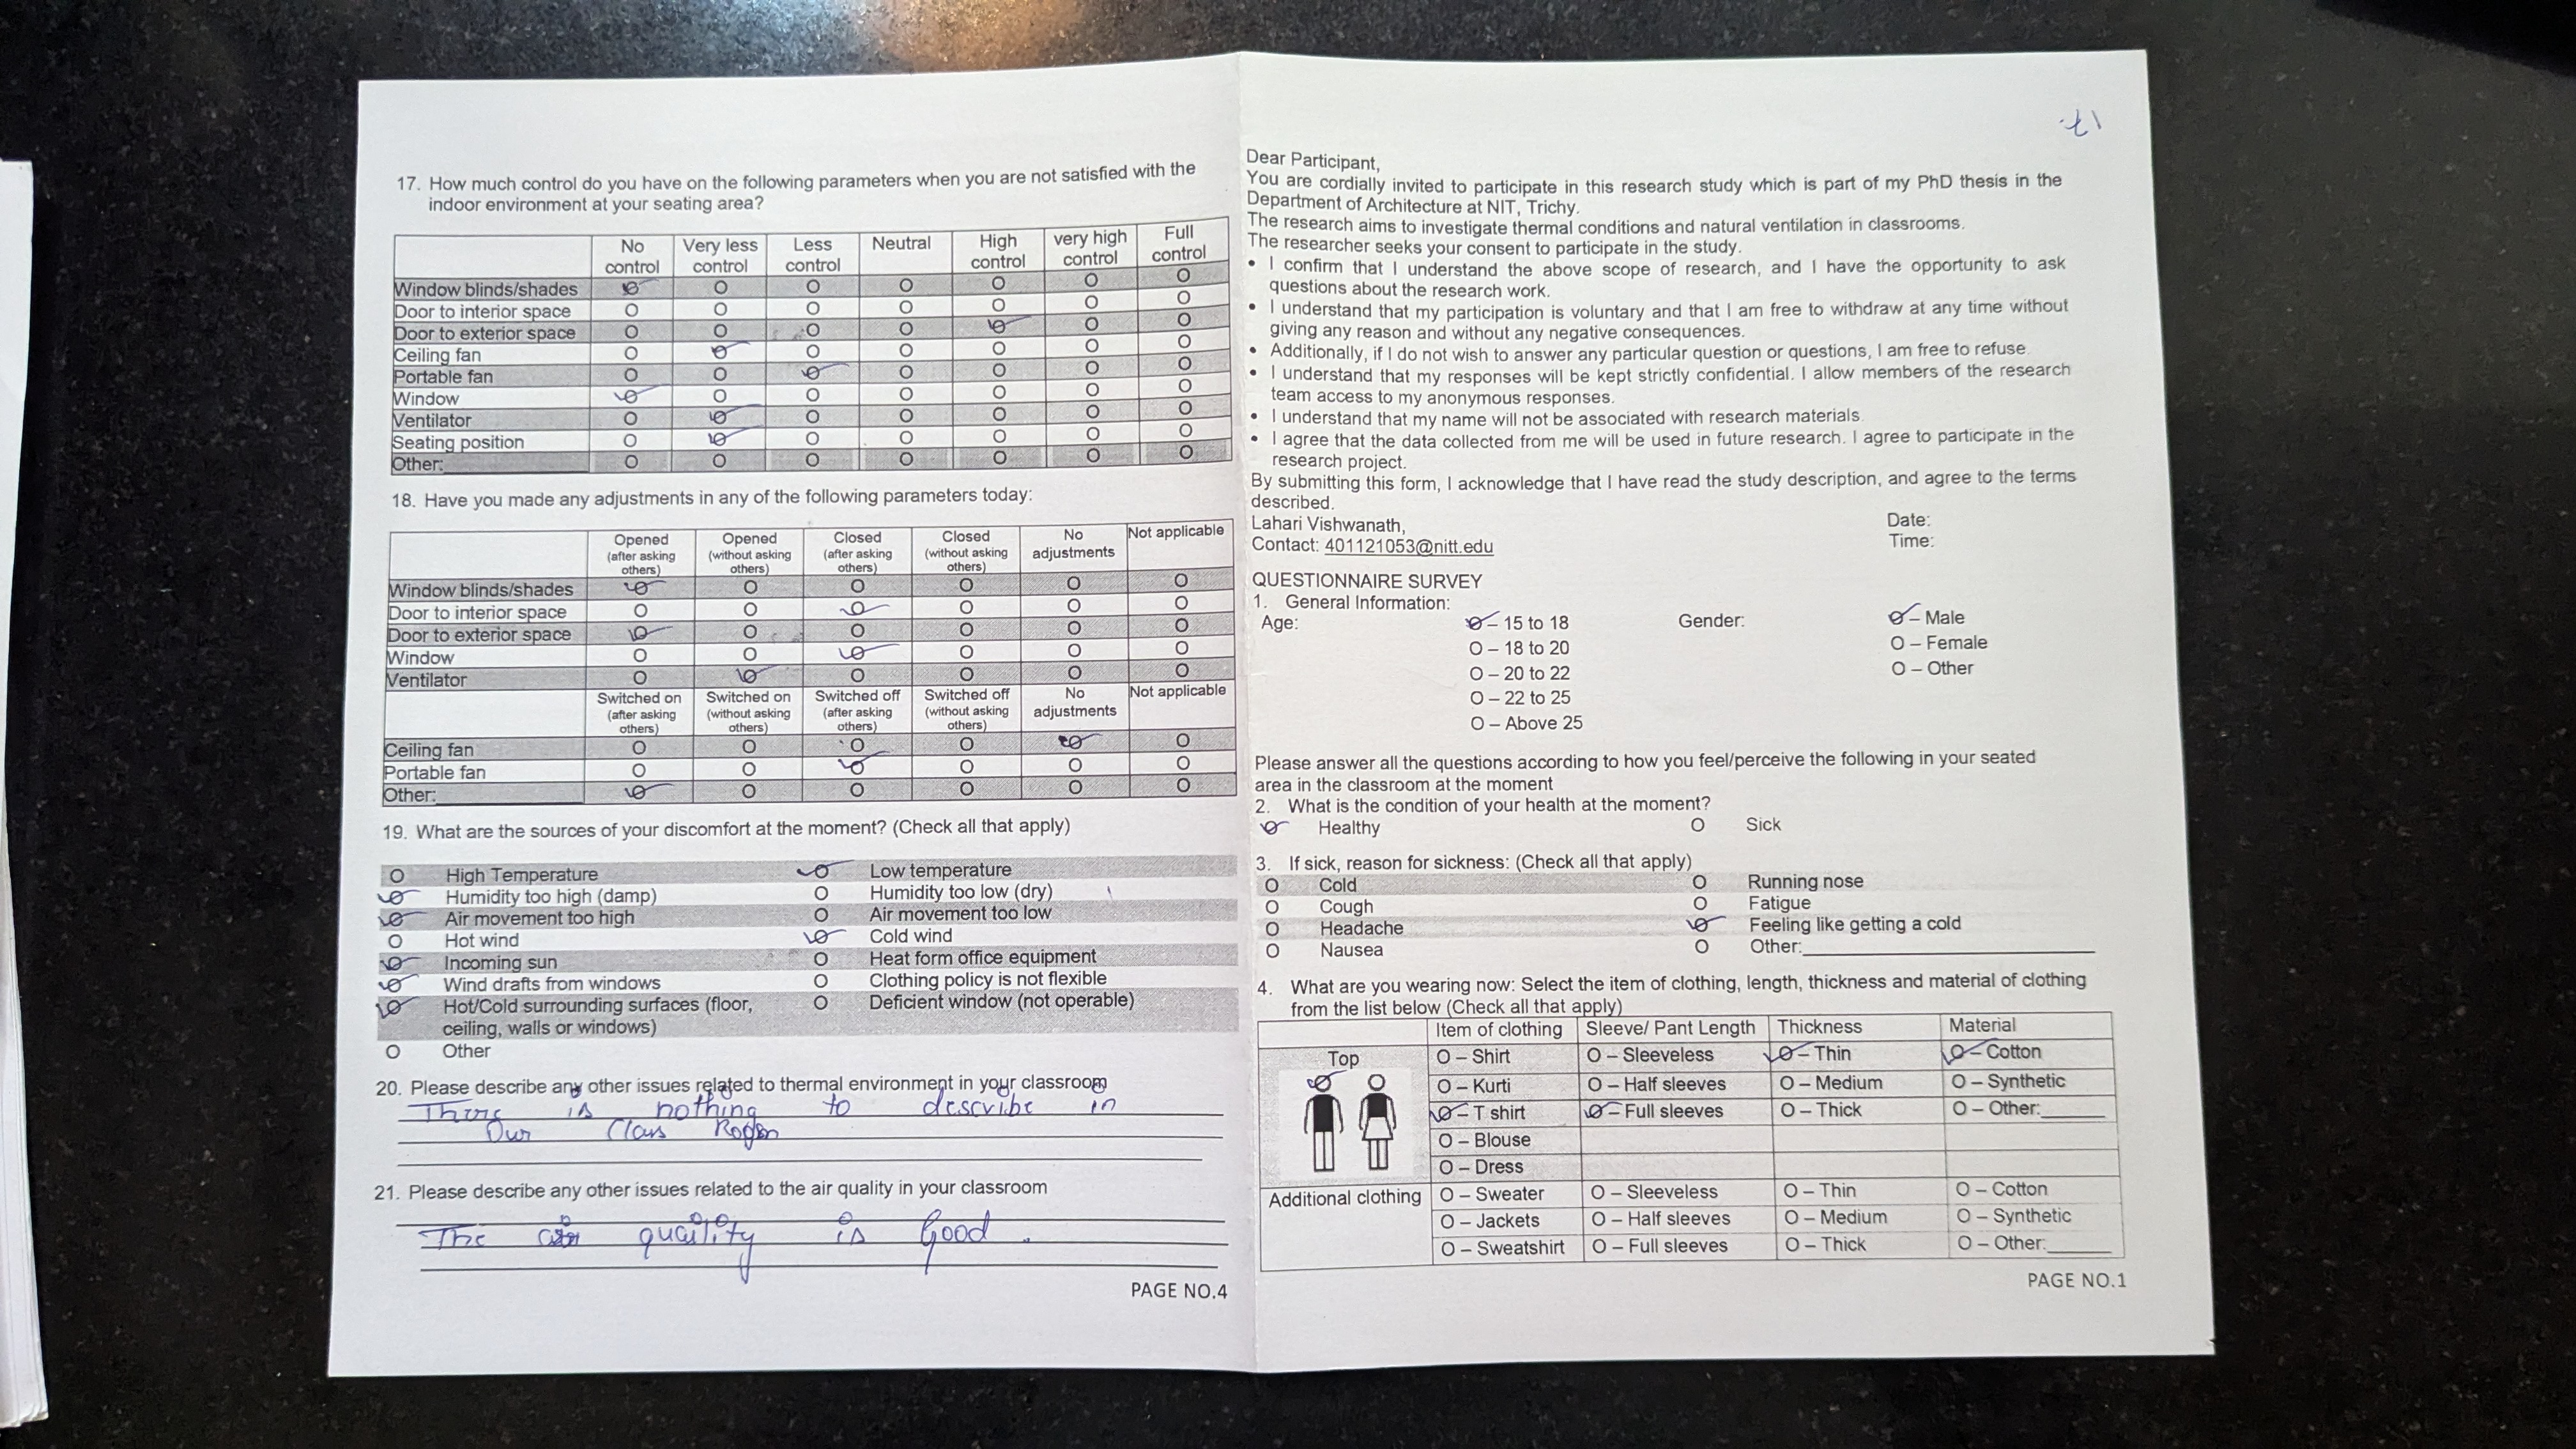 17. How much control do you have on the following parameters when you are not satisfied with the
indoor environment at your seating area?
No control Very less control Less control Neutral High control very high control Full control
Window blinds/shades O O O O O O O
Door to interior space O O O O O O O
Door to exterior space O O O O O O O
Ceiling fan O O O O O O O
Portable fan O O O O O O O
Window O O O O O O O
Ventilator O O O O O O O
Seating position O O O O O O O
Other: O O O O O O O
18. Have you made any adjustments in any of the following parameters today:
Opened (after asking others) Opened (without asking others) Closed (after asking others) Closed (without asking others) No adjustments Not applicable
Window blinds/shades O O O O O O
Door to interior space O O O O O O
Door to exterior space O O O O O O
Window O O O O O O
Ventilator O O O O O O
Switched on (after asking others) Switched on (without asking others) Switched off (after asking others) Switched off (without asking others) No adjustments Not applicable
Ceiling fan O O O O O O
Portable fan O O O O O O
Other: O O O O O O
19. What are the sources of your discomfort at the moment? (Check all that apply)
O High Temperature O Low temperature
O Humidity too high (damp) O Humidity too low (dry)
O Air movement too high O Air movement too low
O Hot wind O Cold wind
O Incoming sun O Heat form office equipment
O Wind drafts from windows O Clothing policy is not flexible
O Hot/Cold surrounding surfaces (floor, O Deficient window (not operable)
ceiling, walls or windows)
O Other
20. Please describe any other issues related to thermal environment in your classroom
There is nothing to describe in
Our Class
21. Please describe any other issues related to the air quality in your classroom
The air quality is Good.
PAGE NO.4
Dear Participant,
You are cordially invited to participate in this research study which is part of my PhD thesis in the
Department of Architecture at NIT, Trichy.
The research aims to investigate thermal conditions and natural ventilation in classrooms.
The researcher seeks your consent to participate in the study.
• I confirm that I understand the above scope of research, and I have the opportunity to ask
questions about the research work.
• I understand that my participation is voluntary and that I am free to withdraw at any time without
giving any reason and without any negative consequences.
• Additionally, if I do not wish to answer any particular question or questions, I am free to refuse.
• I understand that my responses will be kept strictly confidential. I allow members of the research
team access to my anonymous responses.
• I understand that my name will not be associated with research materials.
• I agree that the data collected from me will be used in future research. I agree to participate in the
research project.
By submitting this form, I acknowledge that I have read the study description, and agree to the terms
described.
Lahari Vishwanath, Date:
Contact: 401121053@nitt.edu Time:
QUESTIONNAIRE SURVEY
1. General Information:
Age: O – 15 to 18 Gender: O – Male
O – 18 to 20 O – Female
O – 20 to 22 O – Other
O – 22 to 25
O – Above 25
Please answer all the questions according to how you feel/perceive the following in your seated
area in the classroom at the moment
2. What is the condition of your health at the moment?
O Healthy O Sick
3. If sick, reason for sickness: (Check all that apply)
O Cold O Running nose
O Cough O Fatigue
O Headache O Feeling like getting a cold
O Nausea O Other:
4. What are you wearing now: Select the item of clothing, length, thickness and material of clothing
from the list below (Check all that apply)
Item of clothing Sleeve/ Pant Length Thickness Material
Top O – Shirt O – Sleeveless O – Thin O – Cotton
O – Kurti O – Half sleeves O – Medium O – Synthetic
O – T shirt O – Full sleeves O – Thick O – Other:
O – Blouse
O – Dress
Additional clothing O – Sweater O – Sleeveless O – Thin O – Cotton
O – Jackets O – Half sleeves O – Medium O – Synthetic
O – Sweatshirt O – Full sleeves O – Thick O – Other:
PAGE NO.1